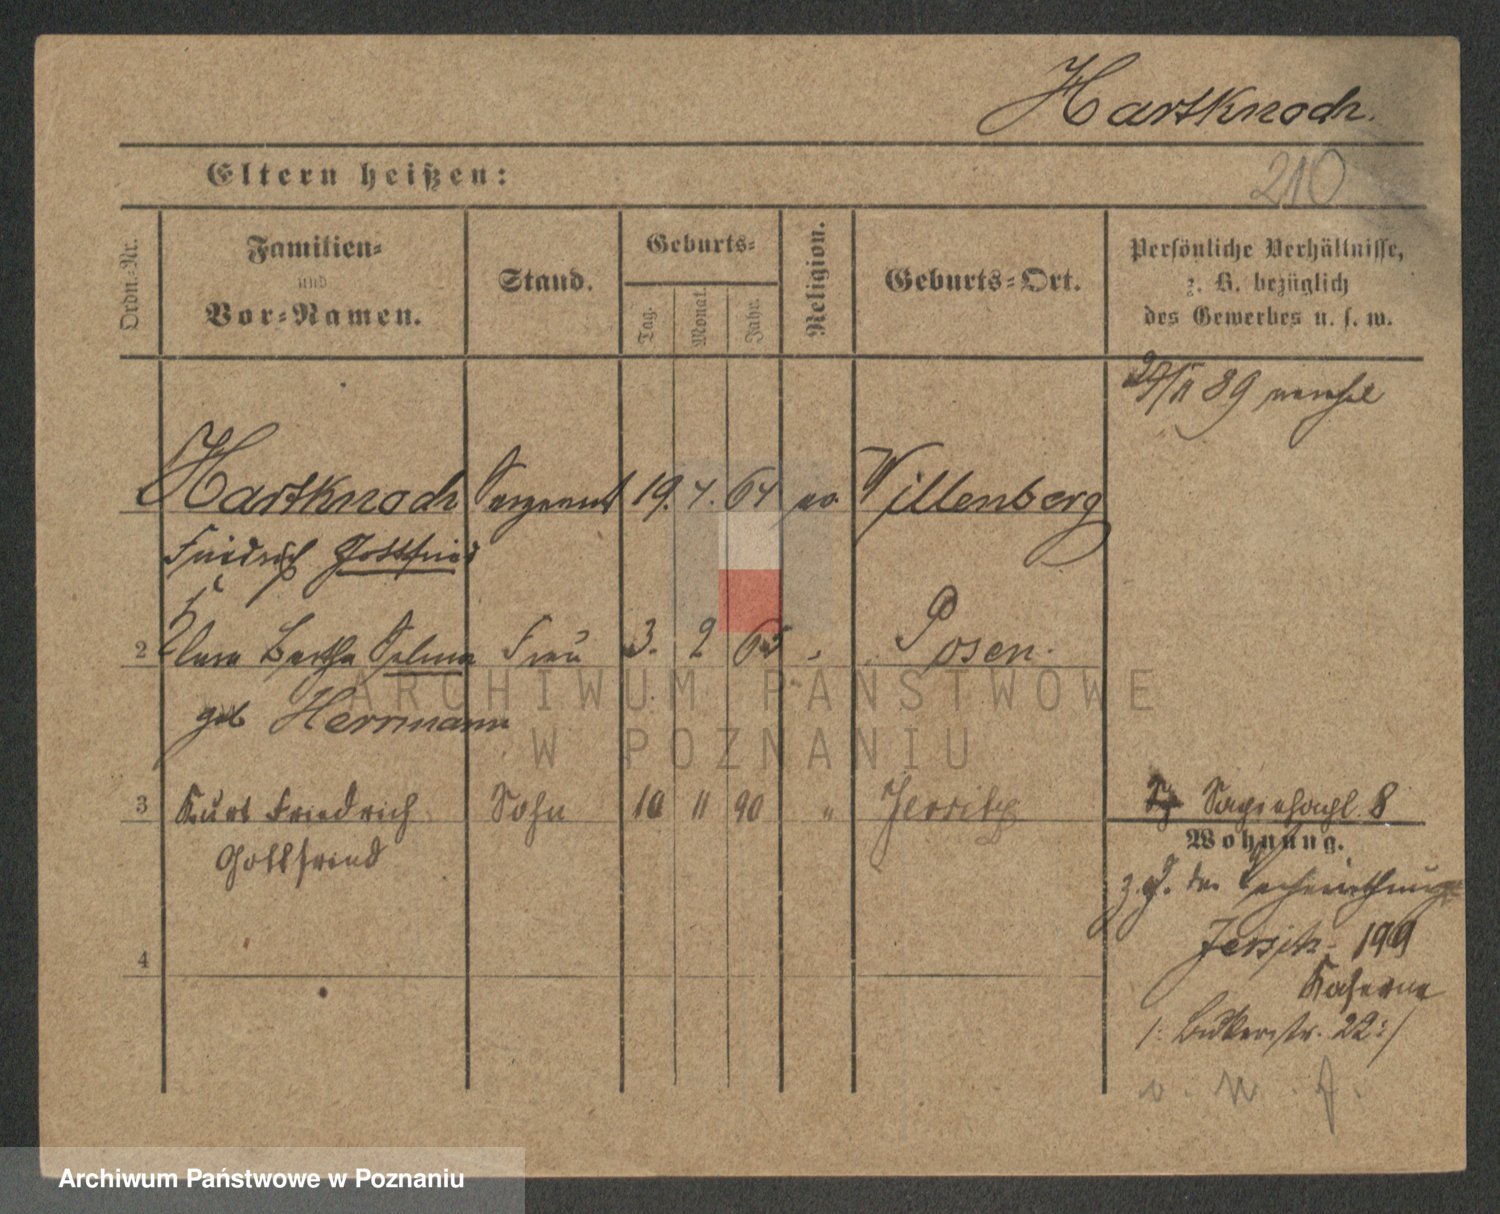 Hartknoch.
210
Eltern heißen:
Ordn.-Nr.
Familien-
und
Vor-Namen.
Stand.
Geburts-
Tag.
Monat.
Jahr.
Religion.
Geburts-Ort.
Persönliche Verhältnisse,
z. B. bezüglich
des Gewerbes u. s. w.
89
Hartknoch Sergeant 19. 4. 64 ev Willenberg
Friedrich Gottfried
2 Clara Bertha Selma Frau 3. 2 65 Posen.
geb Herrmann
3 Kurt Friedrich Sohn 10 11 90 " Jersitz
Gottfried
8
Wohnung.
z. J. der
Jersitz 199
4
Kaserne
/: Bukerstr. 22 :/
v. W. J.
ARCHIWUM PAŃSTWOWE
W POZNANIU
Archiwum Państwowe w Poznaniu